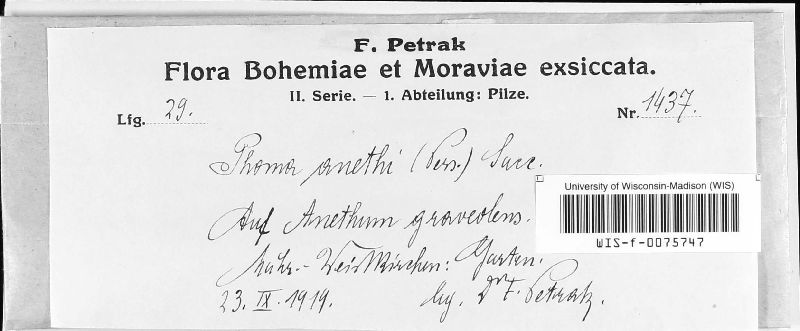 F. Petrak
Flora Bohemiae et Moraviae exsiccata.
II. Serie. — 1. Abteilung: Pilze.
Lfg. 29.
Nr. 1437.
Phoma anethi (Pers.) Sacc.
Auf Anethum graveolens.
University of Wisconsin-Madison (WIS)
WIS-f-0075747
Mähr.-Weisskirchen: Garten.
23. IX. 1919.
lg. Dr. F. Petrak.